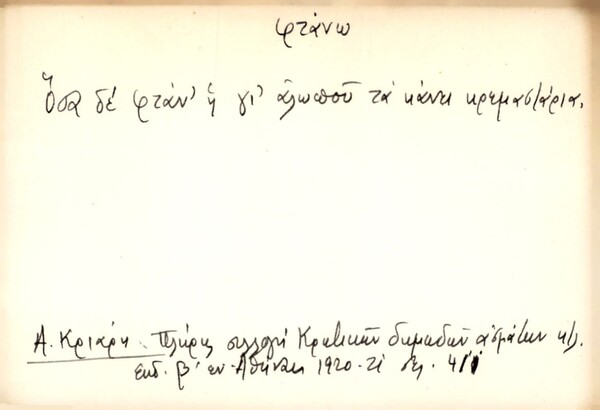 φτάνω
Ὅσα δέ φτάν' ἡ γι' ἀλωποῦ τά κάνει κρεμαστάρια.
Α. Κριάρη Πλήρης συλλογή Κρητικῶν δημωδῶν ᾀσμάτων κτλ.
ἔκδ. β' ἐν Ἀθήναις 1920-21 σελ.